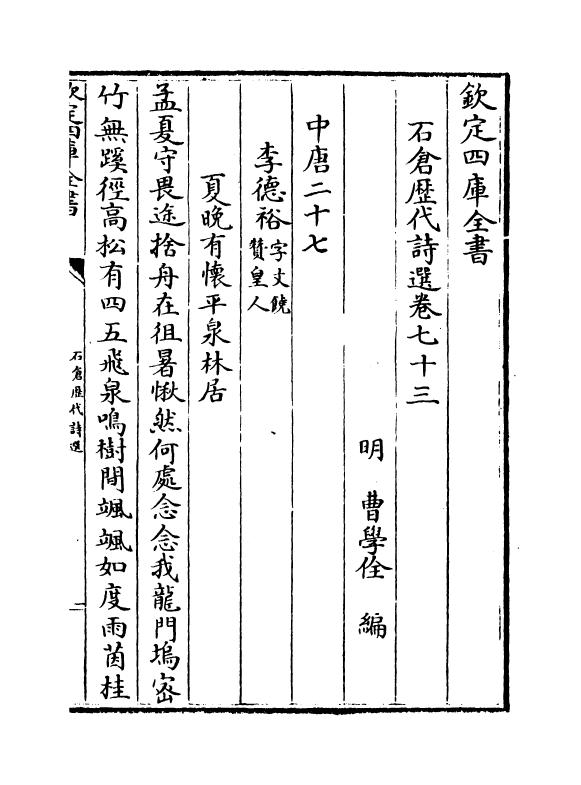 欽定四庫全書
石倉歷代詩選卷七十三
明 曹學佺 編
中唐二十七
李德裕字文饒
贊皇人
夏晚有懷平泉林居
孟夏守畏途捨舟在徂暑愀然何處念念我龍門塢密
竹無蹊徑高松有四五飛泉鳴樹間颯颯如度雨茵桂
欽定四庫全書
石倉歷代詩選
一